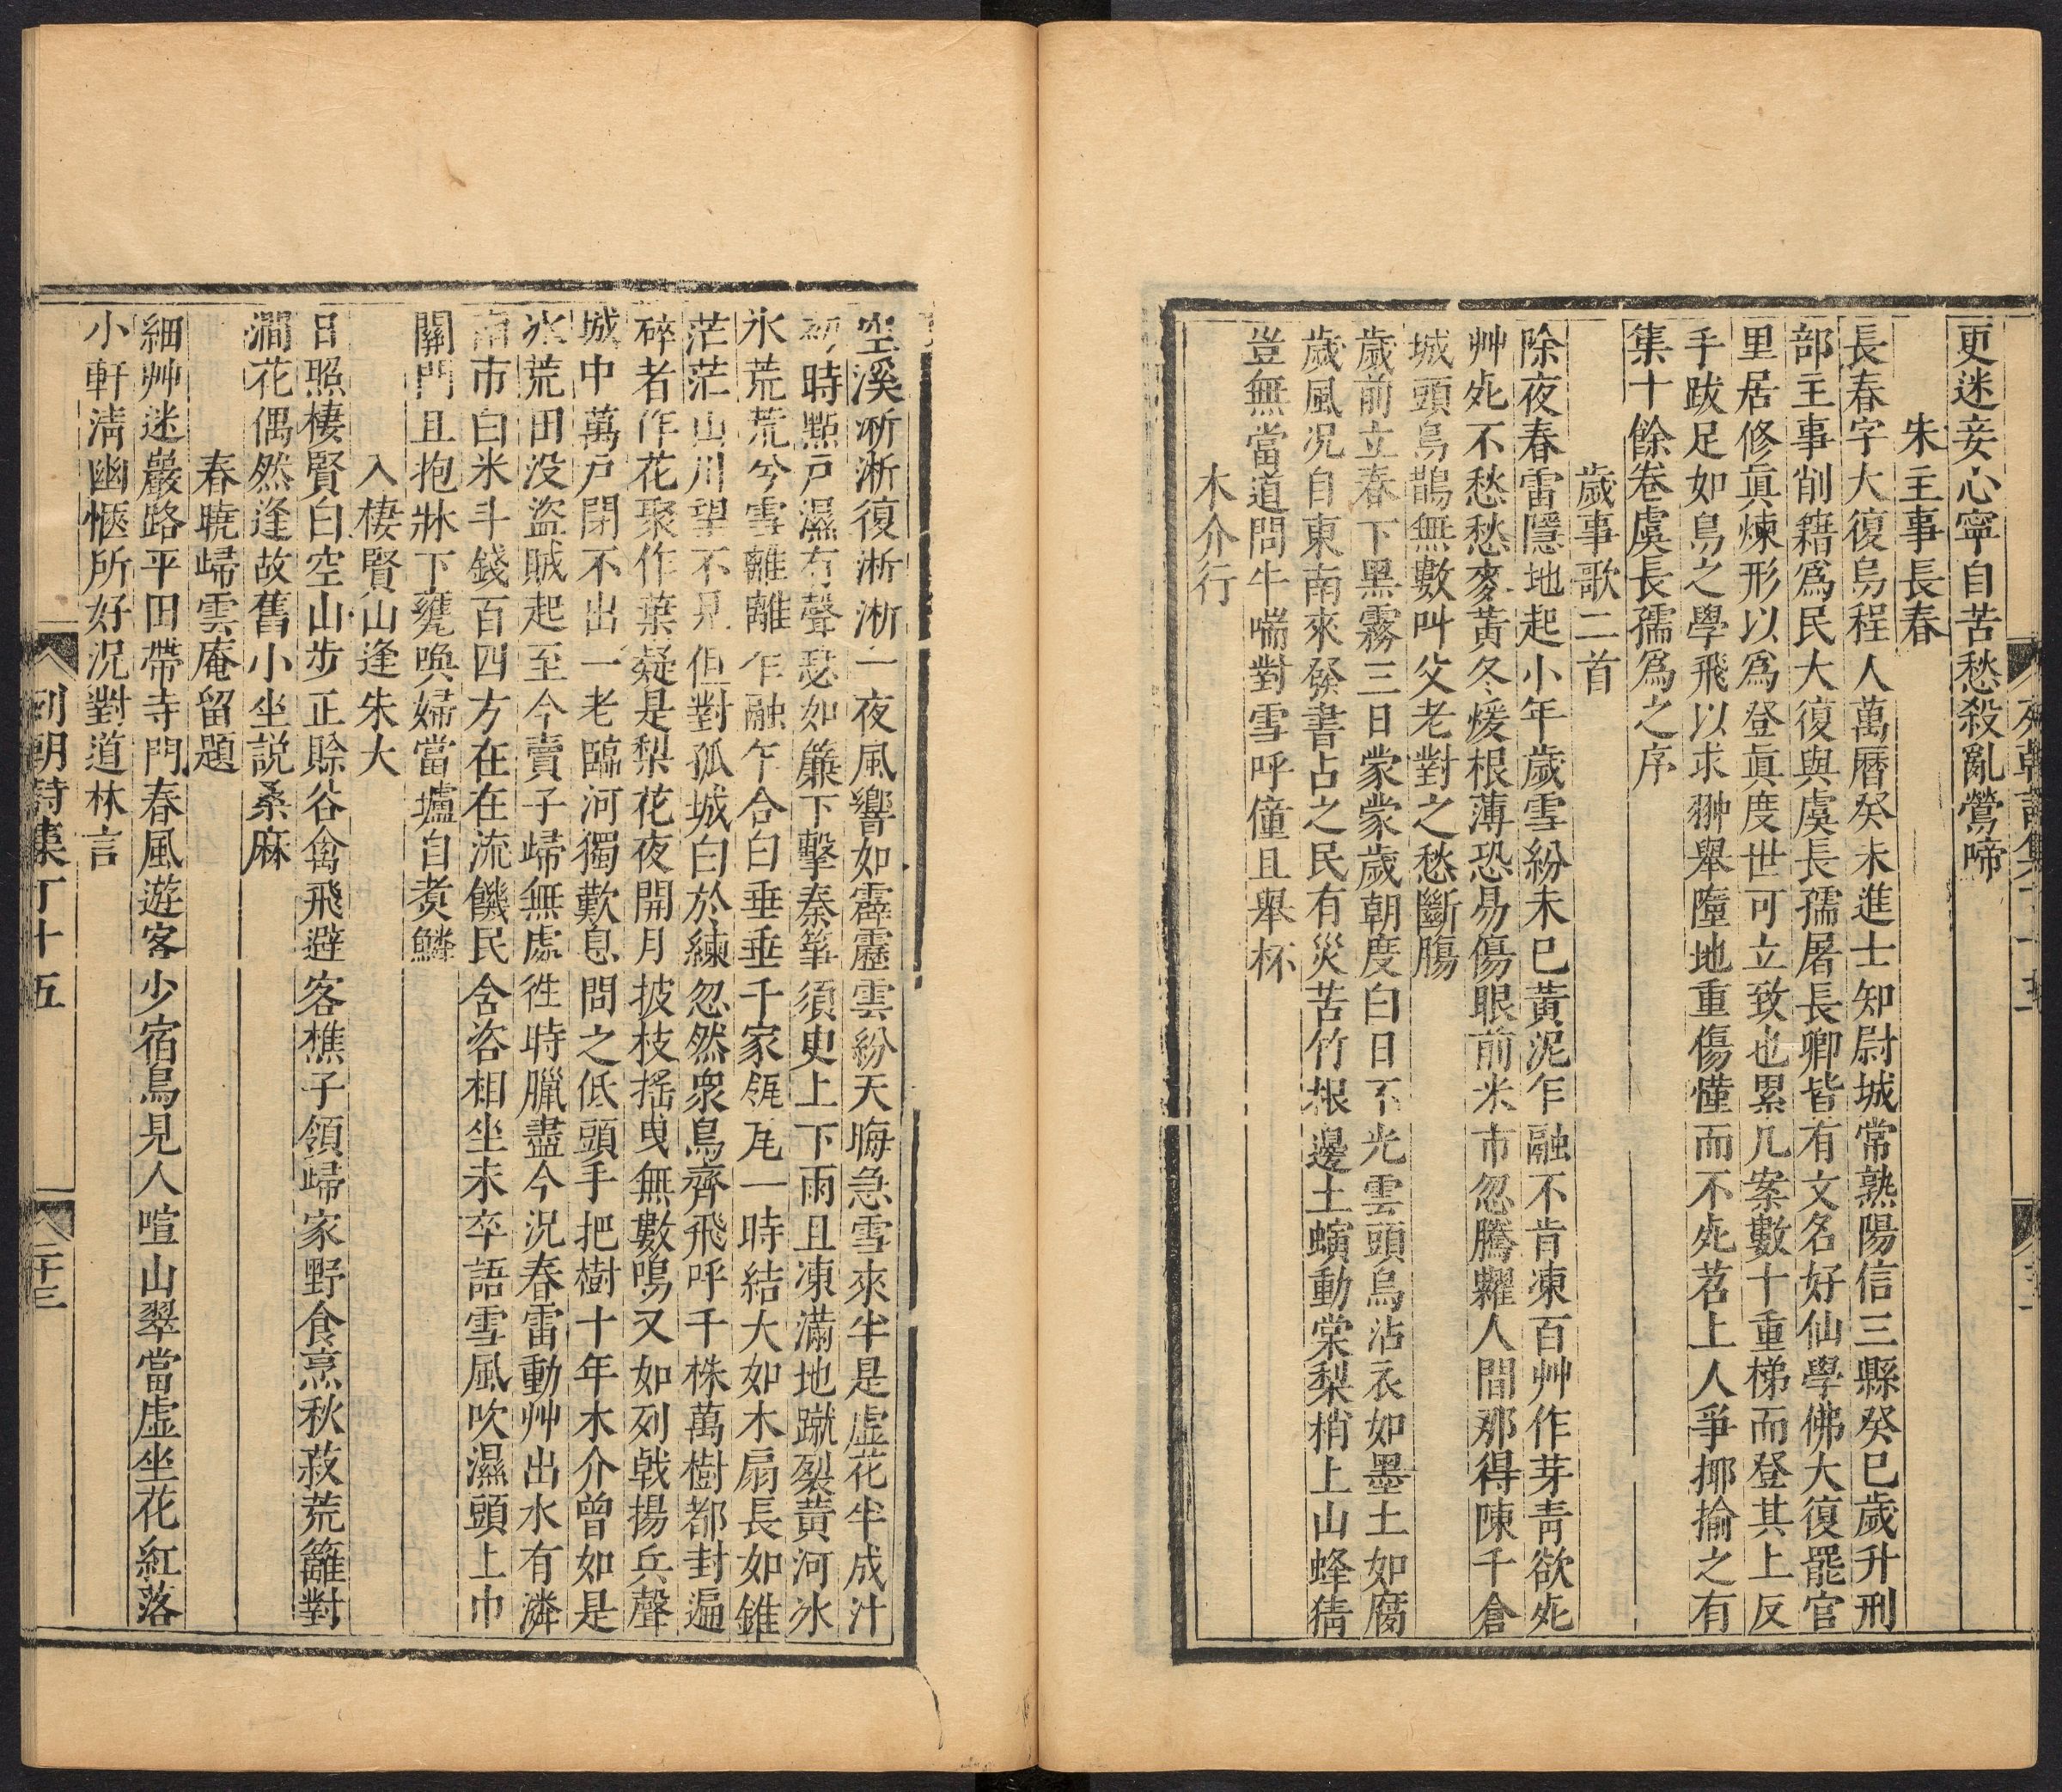 更迷妾心寧自苦愁殺亂鶯啼
朱主事長春
長春字大復烏程人萬曆癸未進士知尉城常熟陽信三縣癸巳歲升刑
部主事削籍爲民大復與虞長孺屠長卿皆有文名好仙學佛大復罷官
里居修眞煉形以爲登眞度世可立致也累几案數十重梯而登其上反
手跋足如鳥之學飛以求翀舉墮地重傷懂而不死苕上人爭揶揄之有
集十餘卷虞長孺爲之序
歲事歌二首
除夜春雷隱地起小年歲雪紛未巳黃泥乍融不肯凍百艸作芽靑欲死
艸死不愁愁麥黃冬煖根薄恐易傷眼前米市忽騰糶人間那得陳千倉
城頭烏鵲無數叫父老對之愁斷腸
歲前立春下黑霧三日蒙蒙歲朝度白日不光雲頭烏沾衣如墨土如腐
歲風況自東南來發書占之民有災苦竹根邊土蟥動棠梨梢上山蜂猜
豈無當道問牛喘對雪呼僮且舉杯
木介行
空溪淅淅復淅淅一夜風響如霹靂雲紛天晦急雪來半是虛花半成汁
初時點戸濕有聲瑟如簾下擊秦箏須臾上下雨且凍滿地蹴裂黃河氷
氷荒荒兮雪離離乍融乍合白垂垂千家瓴瓦一時結大如木扇長如錐
茫茫山川望不見但對孤城白於練忽然衆鳥齊飛呼千株萬樹都封遍
碎者作花聚作葉疑是梨花夜開月披枝搖曳無數鳴又如列戟揚兵聲
城中萬戸閉不出一老臨河獨歎息問之低頭手把樹十年木介曾如是
氷荒田没盜賊起至今賣子歸無處徃時臘盡今況春雷動艸出水有潾
市白米斗錢百四方在在流饑民含咨相坐未卒語雪風吹濕頭上巾
關門且抱牀下甕喚婦當壚自煑鱗
入棲賢山逢朱大
日照棲賢白空山步正賖谷禽飛避客樵子領歸家野食烹秋菽荒籬對
澗花偶然逢故舊小坐説桑麻
春曉歸雲庵留題
細艸迷巖路平田帶寺門春風遊客少宿鳥見人喧山翠當虛坐花紅落
小軒淸幽愜所好況對道林言
列朝詩集丁十五
二十三